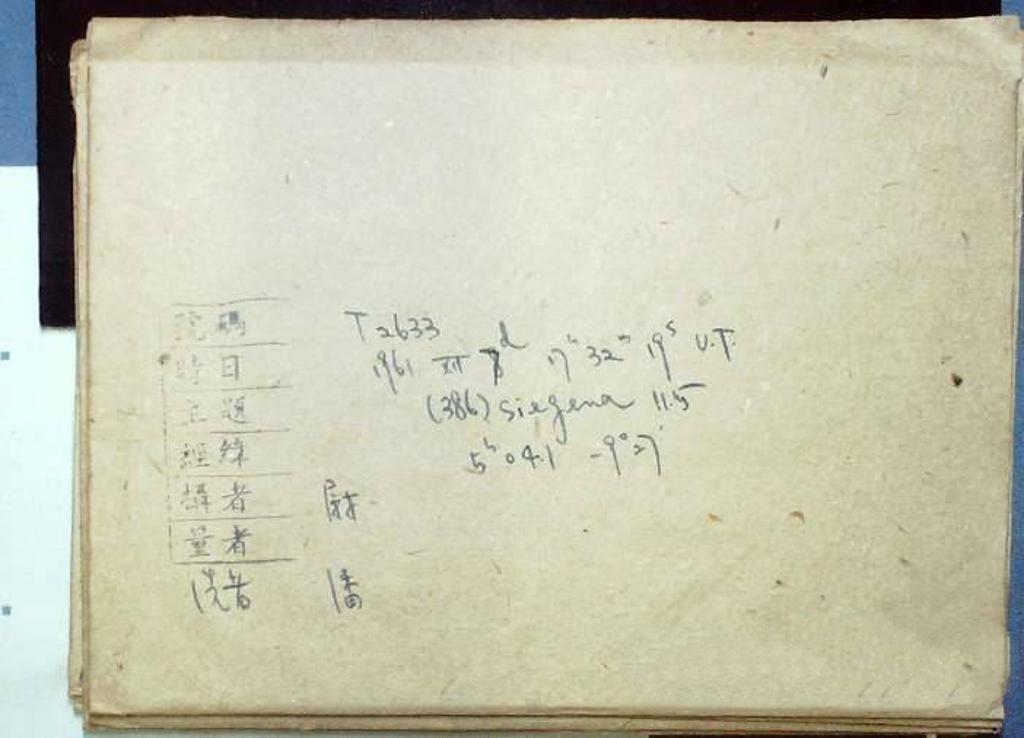 號碼 T2633
時日 1961 XII 8ᵈ 17ʰ 32ᵐ 19ˢ U.T.
主題 (386) Siegena 11.5
經緯 5ʰ04.1 -9°27'
攝者
量者
洗者 潘